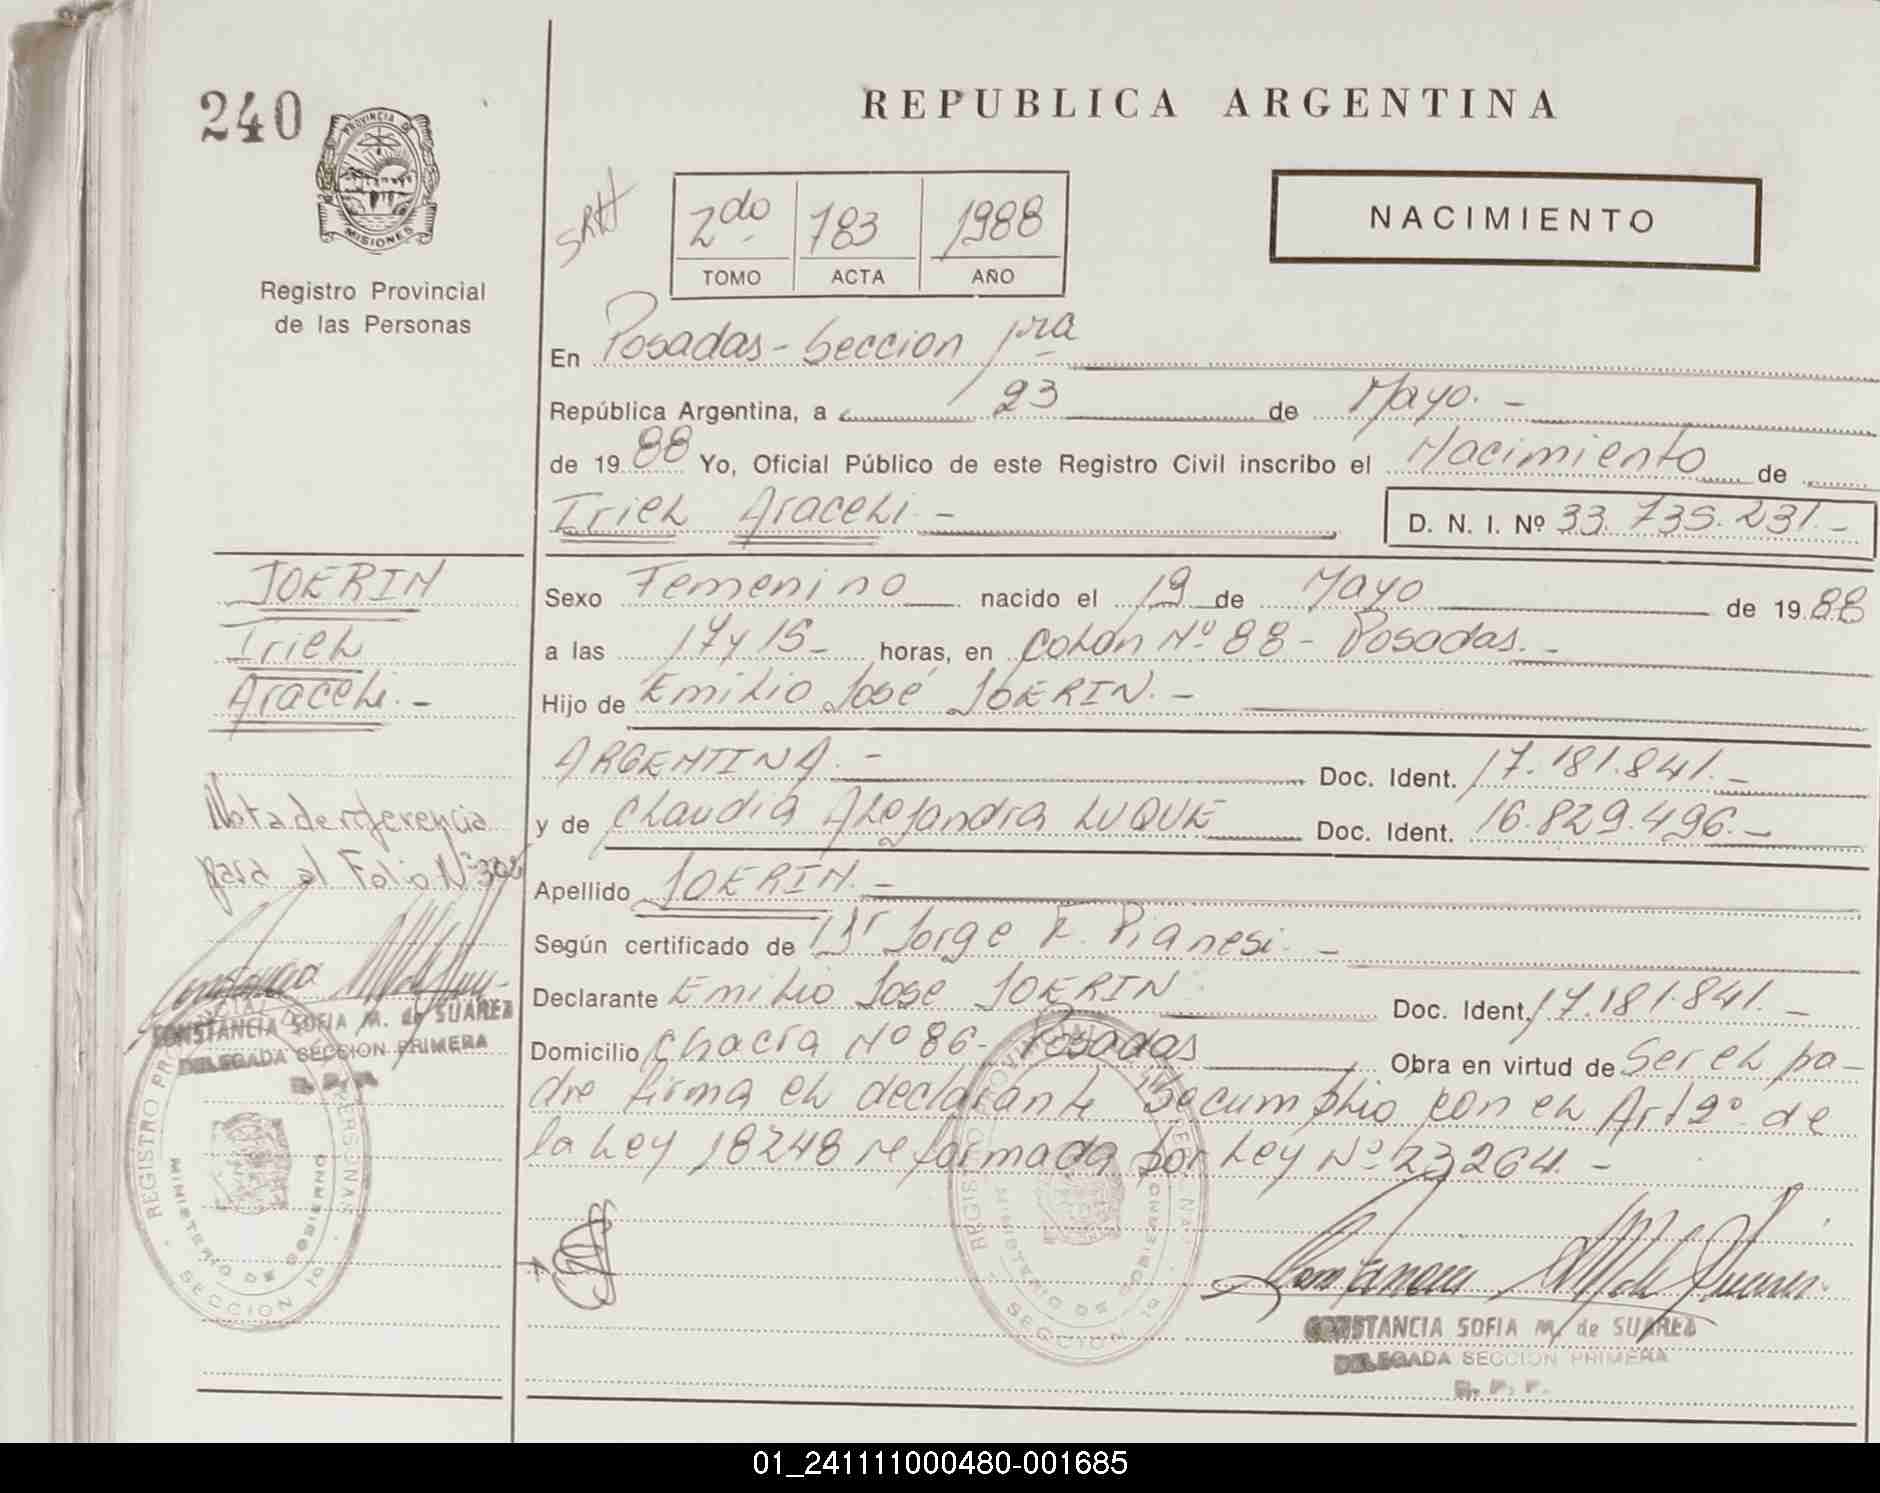 240
PROVINCIA DE
MISIONES
Registro Provincial
de las Personas
REPUBLICA ARGENTINA
NACIMIENTO
2do 783 1988
TOMO ACTA AÑO
En Posadas - Seccion 1ra
República Argentina, a 23 de Mayo. -
de 1988 Yo, Oficial Público de este Registro Civil inscribo el Nacimiento de
Iriel Araceli - D. N. I. Nº 33.735.231. -
JOERIN
Iriel
Araceli. -
Sexo Femenino nacido el 19 de Mayo de 1988
a las 17 y 15 - horas, en Colon Nº 88 - Posadas. -
Hijo de Emilio José JOERIN. -
ARGENTINA. - Doc. Ident. 17.181.841. -
y de Claudia Alejandra LUQUE Doc. Ident. 16.829.496. -
Apellido JOERIN. -
Según certificado de Dr Jorge F. Pianesi. -
Declarante Emilio José JOERIN Doc. Ident. 17.181.841. -
Domicilio Chacra Nº 86 - Posadas Obra en virtud de Ser el pa-
dre firma el declarante Se cumplio con el Art 2º de
la Ley 18248 reformada por Ley Nº 23264. -
Nota de referencia
para al Folio Nº
CONSTANCIA SOFIA M. de SUAREZ
DELEGADA SECCION PRIMERA
REGISTRO PROVINCIAL DE LAS PERSONAS
MINISTERIO DE GOBIERNO
SECCION 1ª
CONSTANCIA SOFIA M. de SUAREZ
DELEGADA SECCION PRIMERA
01_241111000480-001685